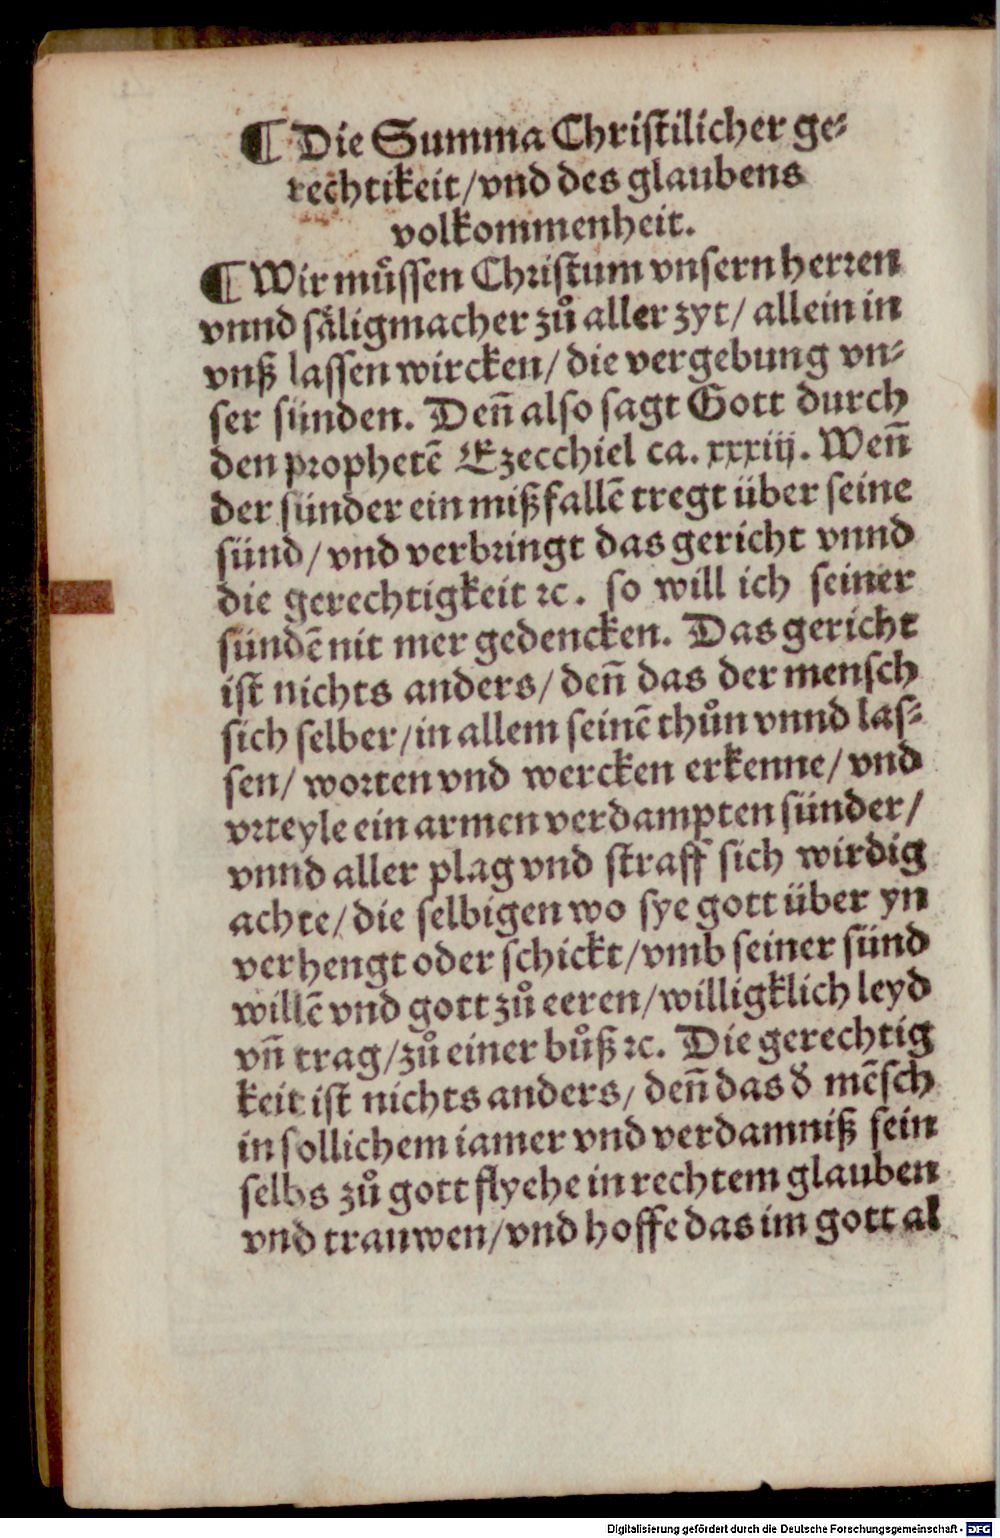 ¶ Die Summa Christilicher ge⸗
rechtikeit/vnd des glaubens
volkommenheit.
¶ Wir muͤssen Christum vnsern herren
vnnd saͤligmacher zuͦ aller zyt/ allein in
vnß lassen wircken/ die vergebung vn⸗
ser sünden. Deñ also sagt Gott durch
den prophetē Ezecchiel ca. xxxiij. Weñ
der sünder ein mißfallē tregt über seine
sünd/ vnd verbringt das gericht vnnd
die gerechtigkeit ꝛc. so will ich seiner
sündē nit mer gedencken. Das gericht
ist nichts anders/ deñ das der mensch
sich selber/in allem seinē thuͦn vnnd las⸗
sen/ worten vnd wercken erkenne/ vnd
vrteyle ein armen verdampten sünder/
vnnd aller plag vnd straff sich wirdig
achte/ die selbigen wo sye gott über yn
verhengt oder schickt/vmb seiner sünd
willē vnd gott zuͦ eeren/willigklich leyd
vñ trag/zuͦ einer buͦß ꝛc. Die gerechtig
keit ist nichts anders/ deñ das ð mēsch
in sollichem iamer vnd verdamniß sein
selbs zuͦ gott flyehe in rechtem glauben
vnd trauwen/vnd hoffe das im gott al
Digitalisierung gefördert durch die Deutsche Forschungsgemeinschaft - DFG